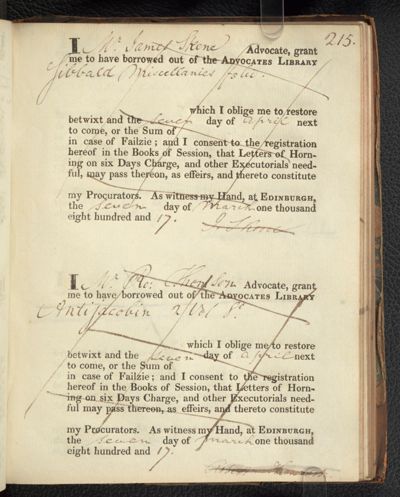 215.
I Mr. James Skene Advocate, grant
me to have borrowed out of the ADVOCATES LIBRARY
Sibbald Miscellanies four.
which I oblige me to restore
betwixt and the seven day of april next
to come, or the Sum of
in case of Failzie; and I consent to the registration
hereof in the Books of Session, that Letters of Horn-
ing on six Days Charge, and other Executorials need-
ful, may pass thereon, as effeirs, and thereto constitute
my Procurators. As witness my Hand, at EDINBURGH,
the seven day of March one thousand
eight hundred and 17.
J. Skene
I Mr. Ro: Thomson Advocate, grant
me to have borrowed out of the ADVOCATES LIBRARY
Antijacobin
which I oblige me to restore
betwixt and the seven day of april next
to come, or the Sum of
in case of Failzie; and I consent to the registration
hereof in the Books of Session, that Letters of Horn-
ing on six Days Charge, and other Executorials need-
ful may pass thereon, as effeirs, and thereto constitute
my Procurators. As witness my Hand, at EDINBURGH,
the seven day of march one thousand
eight hundred and 17.